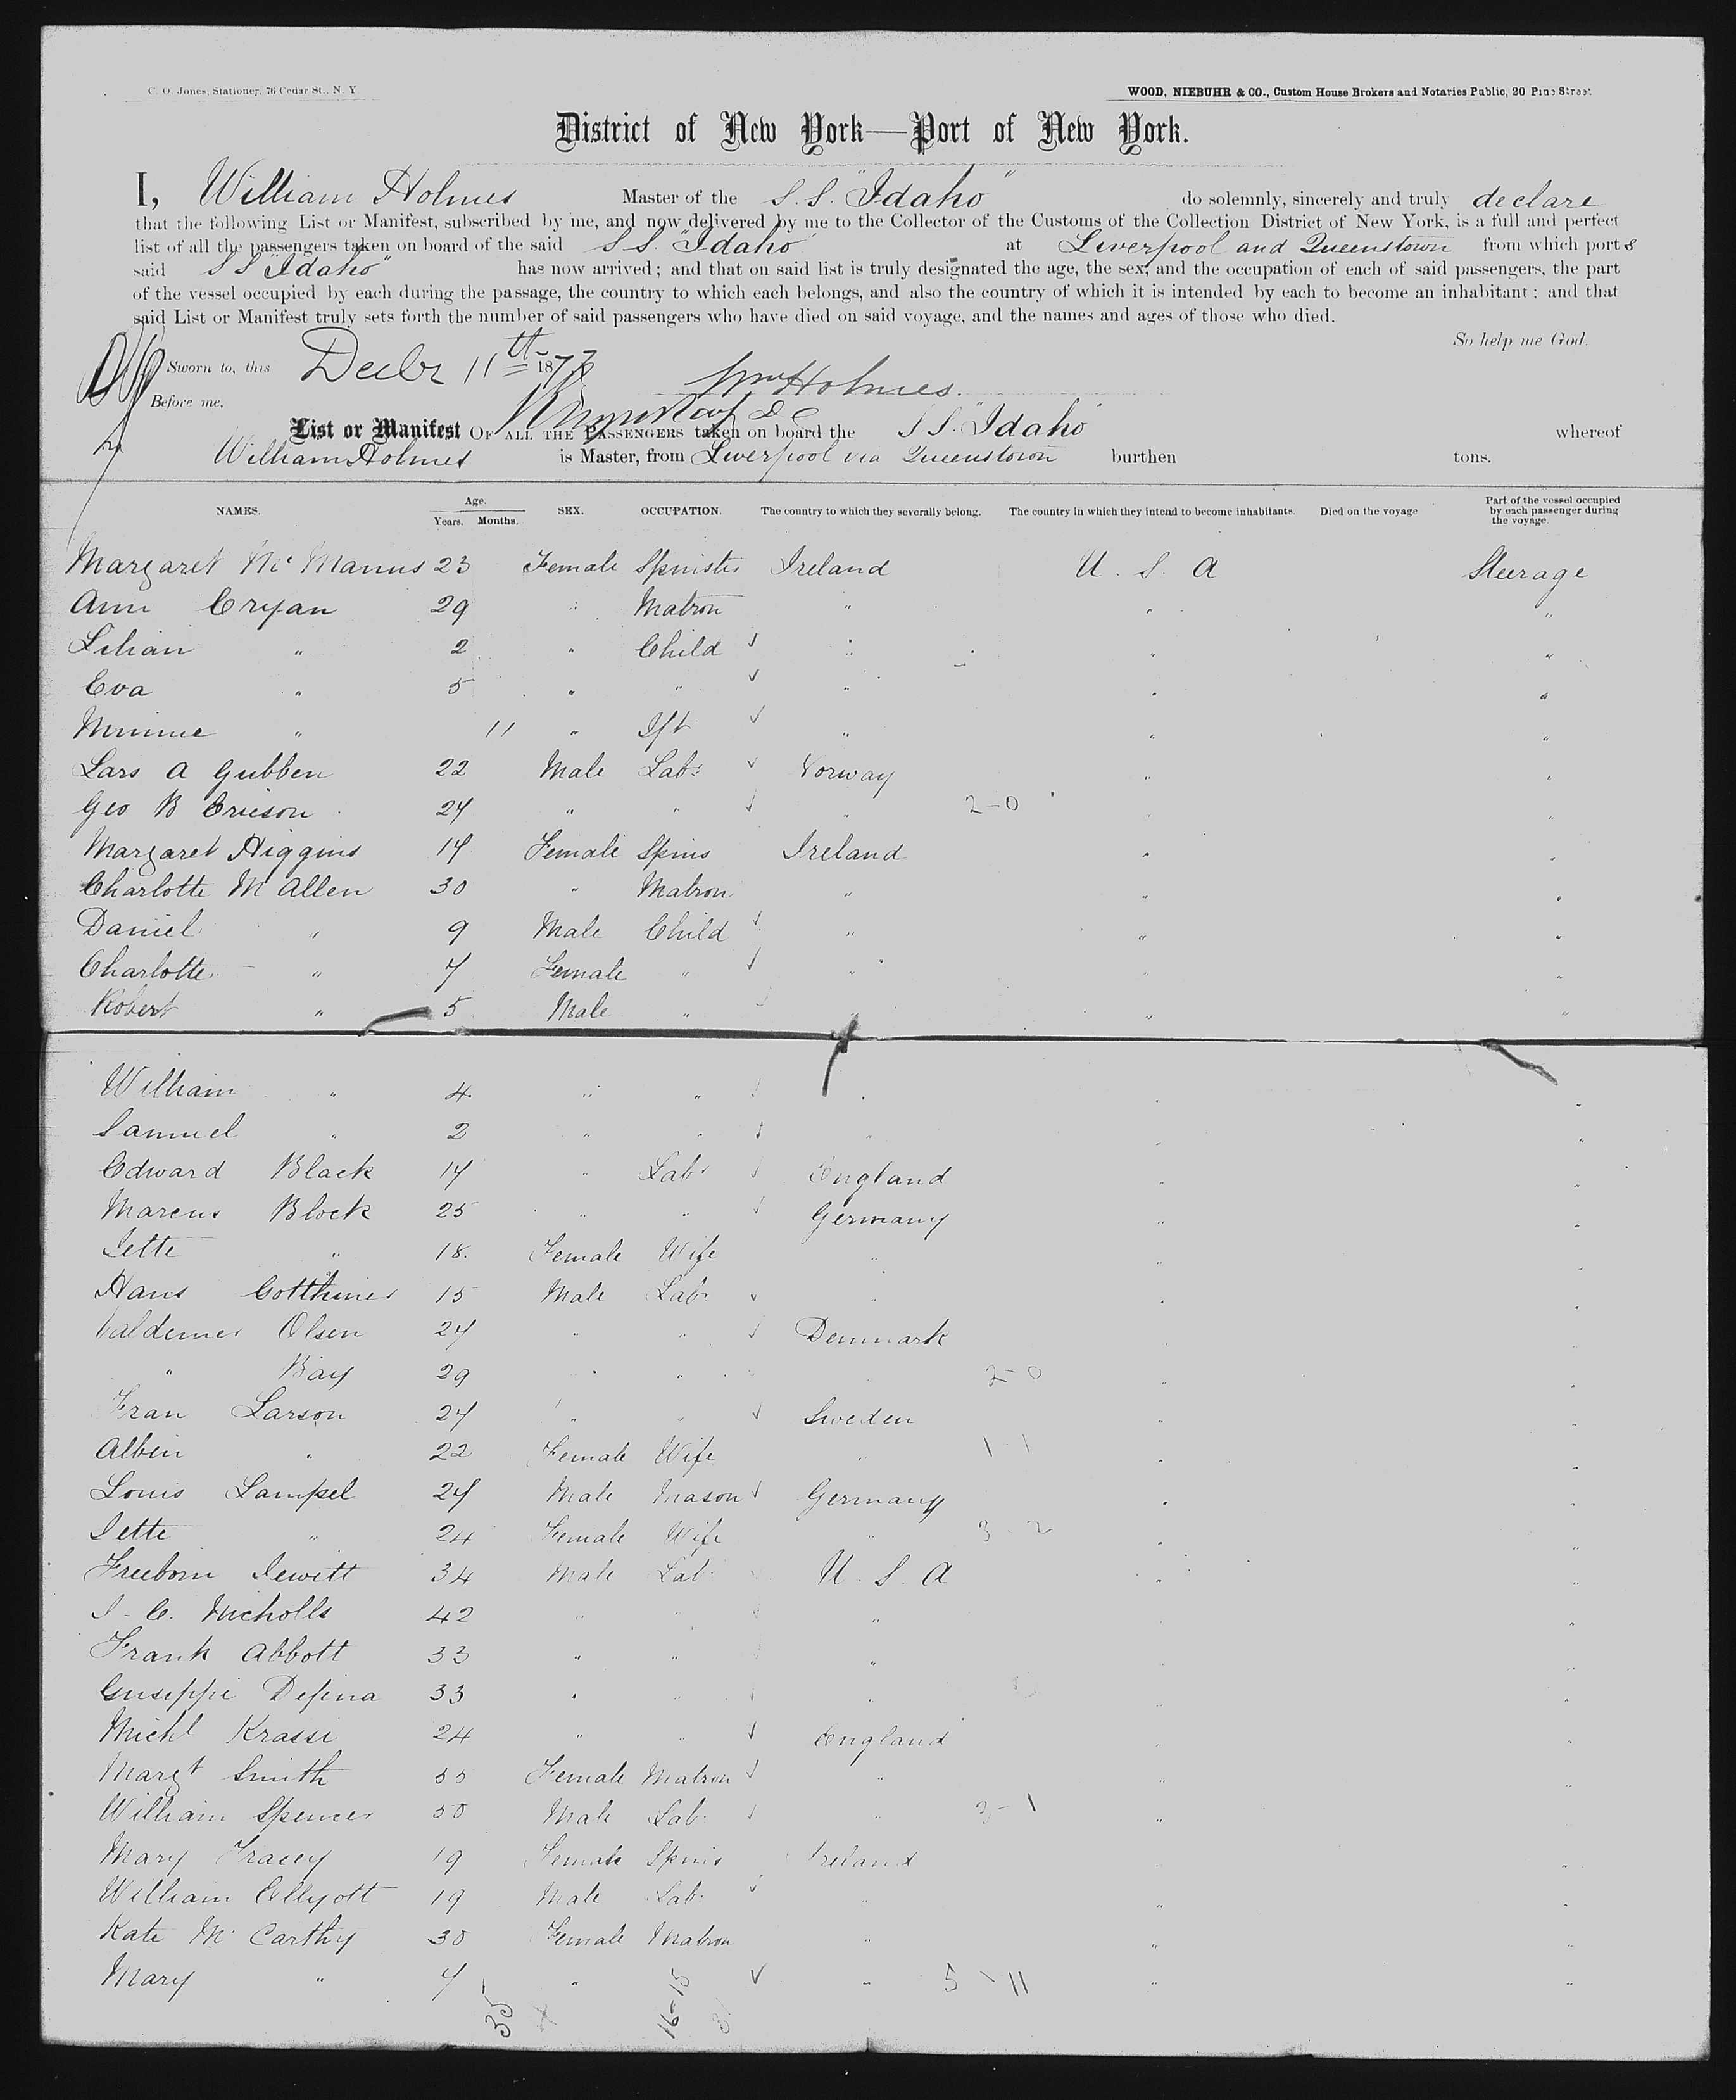 C. O. Jones, Stationer, 76 Cedar St., N. Y
WOOD, NIEBUHR & CO., Custom House Brokers and Notaries Public, 20 Pine Street
District of New York—Port of New York.
I, William Holmes Master of the S.S. "Idaho" do solemnly, sincerely and truly declare
that the following List or Manifest, subscribed by me, and now delivered by me to the Collector of the Customs of the Collection District of New York, is a full and perfect
list of all the passengers taken on board of the said S S. "Idaho at Liverpool and Queenstown from which port s
said S S "Idaho" has now arrived; and that on said list is truly designated the age, the sex, and the occupation of each of said passengers, the part
of the vessel occupied by each during the passage, the country to which each belongs, and also the country of which it is intended by each to become an inhabitant; and that
said List or Manifest truly sets forth the number of said passengers who have died on said voyage, and the names and ages of those who died.
So help me God.
Sworn to, this Decbr 11th 1877
Wm Holmes.
Before me,
List or Manifest OF ALL THE PASSENGERS taken on board the S S. "Idaho" whereof
William Holmes is Master, from Liverpool via Queenstown burthen tons.
NAMES. Age. Years. Months. SEX. OCCUPATION. The country to which they severally belong. The country in which they intend to become inhabitants. Died on the voyage Part of the vessel occupied by each passenger during the voyage.
Margaret Mc Manus 23 Female Spinster Ireland U. S. A Steerage
Ann Cryan 29 " Matron " " "
Lilian " 2 " Child " " "
Eva " 5 " " " " "
Minnie " 11 " Ift " " "
Lars A Gubben 22 Male Labr Norway " "
Geo B Ericson 24 " " " 2-0 " "
Margaret Higgins 14 Female Spins Ireland " "
Charlotte M Allen 30 " Matron " " "
Daniel " 9 Male Child " " "
Charlotte " 7 Female " " " "
Robert " 5 Male " " " "
William " 4 " " " " "
Samuel " 2 " " " " "
Edward Black 14 " Labr England " "
Marcus Block 25 " " Germany " "
Jette " 18. Female Wife " " "
Hans 15 Male Labr " " "
Valdemer Olsen 24 " " Denmark " "
" Bay 29 " " 2-0 " "
Fran Larson 24 " " Sweden " "
Albin " 22 Female Wife " 1-1 " "
Louis Lampel 24 Male Mason Germany " "
Jette " 24 Female Wife " 3-2 " "
Freeborn Jewitt 34 Male Lab U. S. A " "
J. C. Nicholls 42 " " " " "
Frank Abbott 33 " " " " "
Guseppi Defina 33 " " " " "
Michl Krassi 24 " " England " "
Margt Smith 55 Female Matron " " "
William Spencer 50 Male Lab " 3-1 " "
Mary Tracey 19 Female Spins Ireland " "
William Ellyott 19 Male Lab " " "
Kate Mc Carthy 30 Female Matron " " "
Mary " 4 " " 5 11 " "
35 16-15 3